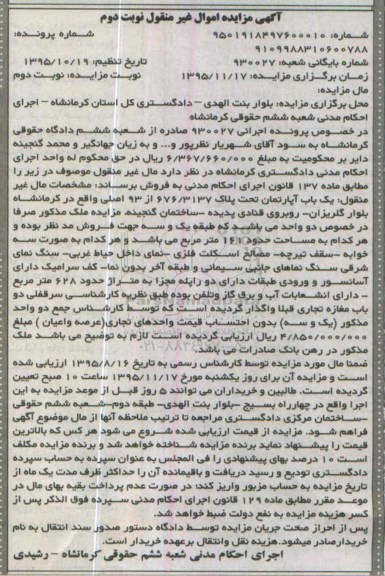 آگهی مزایده اموال غیر منقول نوبت دوم
شماره: ۹۵۰۱۹۱۸۴۹۷۶۰۰۰۱۰ شماره پرونده:
۹۱۰۹۹۸۸۳۱۰۶۰۰۷۸۸
شماره بایگانی شعبه: ۹۳۰۰۲۷ تاریخ تنظیم: ۱۳۹۵/۱۰/۱۹
زمان برگزاری مزایده: ۱۳۹۵/۱۱/۱۷ نوبت مزایده: نوبت دوم
مال مزایده:
محل برگزاری مزایده: بلوار بنت الهدی – دادگستری کل استان کرمانشاه – اجرای
احکام مدنی شعبه ششم حقوقی کرمانشاه
در خصوص پرونده اجرائی ۹۳۰۰۲۷ صادره از شعبه ششم دادگاه حقوقی
کرمانشاه به سود آقای شهریار نظرپور و... و به زیان جهانگیر و محمد گنجینه
دایر بر محکومیت به مبلغ ۶/۳۶۷/۶۶۰/۰۰۰ ریال در حق محکوم له واحد اجرای
احکام مدنی دادگستری کرمانشاه در نظر دارد مال غیر منقول موصوف در زیر را
مطابق ماده ۱۳۷ قانون اجرای احکام مدنی به فروش برساند: مشخصات مال غیر
منقول: یک باب آپارتمان تحت پلاک ۶۷۶/۳۱۳۷ از ۹۳ اصلی واقع در کرمانشاه
بلوار گلریزان- روبروی قنادی پدیده –ساختمان گنجینه. مزایده ملک مذکور صرفا
در خصوص دو واحد می باشد که طبقه یک و سه جهت فروش مد نظر بوده و
هر کدام به مساحت حدود ۱۶۱ متر مربع می باشد و هر کدام به صورت سه
خوابه –سقف تیرچه- مصالح اسکلت فلزی –نمای داخل حیاط غربی- سنگ نمای
شرقی سنگ نماهای جانبی سیمانی و طبقه آخر بدون نما- کف سرامیک دارای
آسانسور و ورودی طبقات دارای دو راپله مجزا به متراژ حدود ۶۲۸ متر مربع
– دارای انشعابات آب و برق گاز وتلفن بوده طبق نظریه کارشناسی سرقفلی دو
باب مغازه تجاری قبلا واگذار گردیده است که توسط کارشناس جمع دو واحد
مذکور (یک و سه) بدون احتساب قیمت واحدهای تجاری(عرصه واعیان) مبلغ
۴/۸۵۰/۰۰۰/۰۰۰ ریال ارزیابی گردیده است لازم به توضیح می باشد ملک
مذکور در رهن بانک صادرات می باشد.
ضمنا مال مورد مزایده توسط کارشناس رسمی به تاریخ ۱۳۹۵/۸/۱۶ ارزیابی شده
است و مزایده آن برای روز یکشنبه مورخ ۱۳۹۵/۱۱/۱۷ ساعت ۱۰ صبح تعیین
گردیده است. طالبین و خریداران می توانند ۵ روز قبل از موعد مزایده به این
اجرا واقع در چهارراه بسیج –بلوار بنت الهدی- طبقه دوم-شعبه ششم حقوقی
–ساختمان مرکزی دادگستری مراجعه تا ترتیب ملاحظه آنها از مال موضوع آگهی
فراهم شود. مزایده از قیمت ارزیابی شده شروع می شود هر کس که بالاترین
قیمت را پیشنهاد نماید برنده مزایده شناخته خواهد شد و برنده مزایده مکلف
است ۱۰ درصد بهای پیشنهادی را فی المجلس به عنوان سپرده به حساب سپرده
دادگستری تودیع و رسید دریافت و باقیمانده آن را حداکثر ظرف مدت یک ماه از
تاریخ مزایده به حساب مزبور واریز کند؛ در صورت عدم پرداخت بقیه بهای مال در
موعد مقرر مطابق ماده ۱۲۹ قانون اجرای احکام مدنی سپرده فوق الذکر پس از
کسر هزینه مزایده به نفع دولت ضبط خواهد شد.
پس از احراز صحت جریان مزایده توسط دادگاه دستور صدور سند انتقال به نام
خریدارصادر میشود.هزینه نقل وانتقال برعهده خریدار است.
اجرای احکام مدنی شعبه ششم حقوقی کرمانشاه – رشیدی